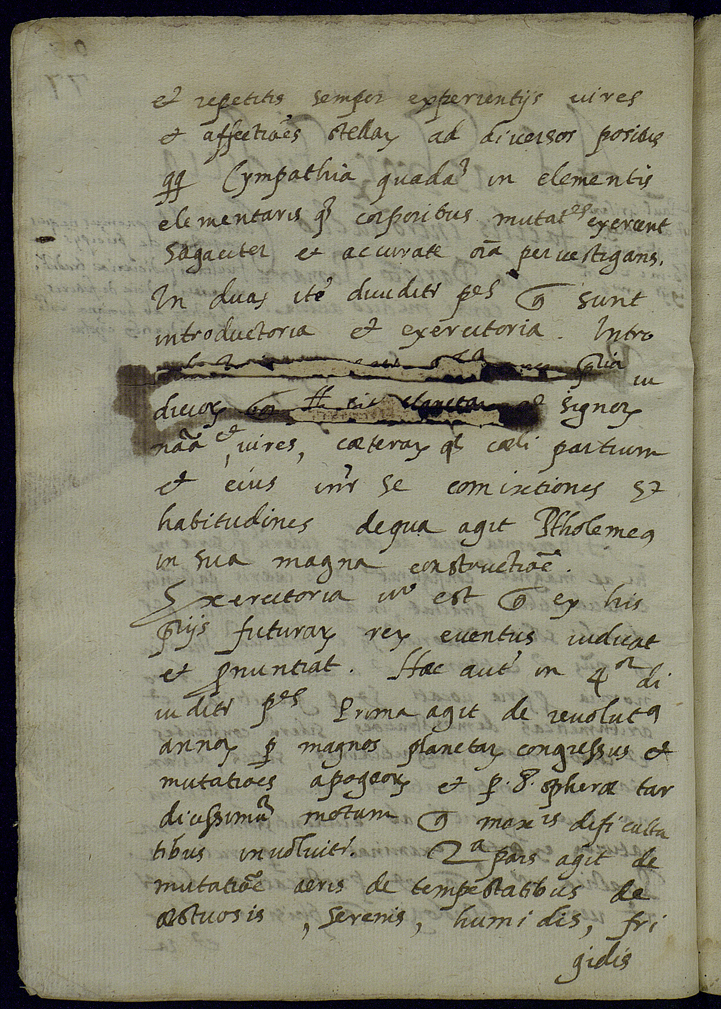 et repetitis semper experientijs uires
et affectiões stellaꝝ ad diuersos positus
qq̃ Sympathia quadã in elementis
elementaris q̃ corporibus mutat.es exercent
sagaciter et accurate oĩa peruestigans.
In duas itẽ diuiditr p.es q̃ sunt
introductoria et exercitoria. Intro
iu
dicioꝝ planetaꝝ et signoꝝ
nãã et, uires, cæteraꝝ q̃ cæli partium
et eius inr̃ se comixtiones
habitudines de qua agit Ptholemeꝰ
in sua magna constructiõe.
Exercitoria uº est q̃ ex his
p̃ijs futuraꝝ reꝝ euentus iudicat
et p̃nuntiat. Hæc autẽ in 4.or di
uiditr p.es Prima agit de reuolutꝰ
annoꝝ p̱ magnos planetaꝝ congressus et
mutatiões apogeoꝝ et p̱ .8. spheræ tar
dissimũ motum q̃ max.is dificulta
tibus inuoluitr. 2.a pars agit de
mutatiõe aeris de tempestatibus de
æstuosis, serenis, humidis, fri
gidis